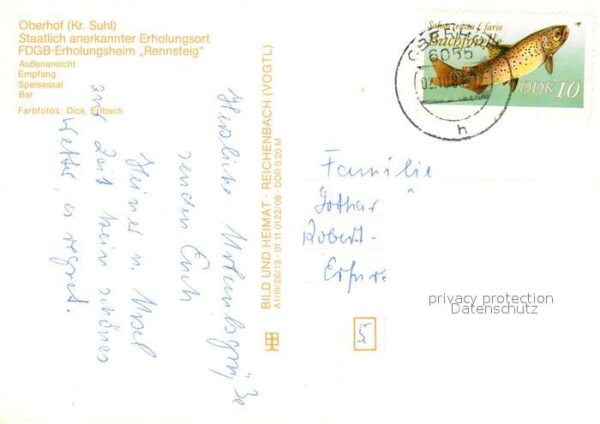 Oberhof (Kr. Suhl)
Staatlich anerkannter Erholungsort
FDGB-Erholungsheim „Rennsteig"
Außenansicht
Empfang
Speisesaal
Bar
Farbfotos: Dick, Erlbach
Herzliche Urlaubsgrüße
senden Euch
Heiner u. Ursel
zur Zeit kein schönes
Wetter, es regnet.
BILD UND HEIMAT · REICHENBACH (VOGTL)
A1/III/26/13 · 01 11 0122/08 · DDR 0,20 M
Salmo trutta f. fario
Bachforelle
DDR 10
OBERHOF
6055
h
Familie
Lothar
Robert-
Erfur
5
privacy protection
Datenschutz